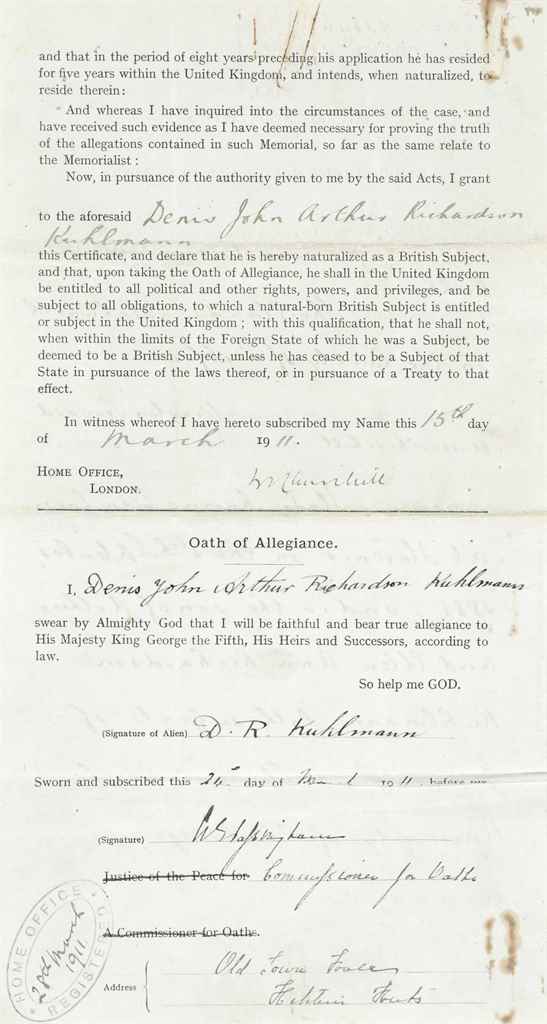 and that in the period of eight years preceding his application he has resided
for five years within the United Kingdom, and intends, when naturalized, to
reside therein:
And whereas I have inquired into the circumstances of the case, and
have received such evidence as I have deemed necessary for proving the truth
of the allegations contained in such Memorial, so far as the same relate to
the Memorialist:
Now, in pursuance of the authority given to me by the said Acts, I grant
to the aforesaid Denis John Arthur Richardson
Kuhlmann
this Certificate, and declare that he is hereby naturalized as a British Subject,
and that, upon taking the Oath of Allegiance, he shall in the United Kingdom
be entitled to all political and other rights, powers, and privileges, and be
subject to all obligations, to which a natural-born British Subject is entitled
or subject in the United Kingdom; with this qualification, that he shall not,
when within the limits of the Foreign State of which he was a Subject, be
deemed to be a British Subject, unless he has ceased to be a Subject of that
State in pursuance of the laws thereof, or in pursuance of a Treaty to that
effect.
In witness whereof I have hereto subscribed my Name this 15th day
of March 1911.
HOME OFFICE,
LONDON.
WSChurchill
Oath of Allegiance.
I, Denis John Arthur Richardson Kuhlmann
swear by Almighty God that I will be faithful and bear true allegiance to
His Majesty King George the Fifth, His Heirs and Successors, according to
law.
So help me GOD.
(Signature of Alien) D. R. Kuhlmann
Sworn and subscribed this day of 1911, before me
(Signature)
Justice of the Peace for Commissioner for Oaths
A Commissioner for Oaths.
Address Old Town
HOME OFFICE
March
1911
REGISTERED